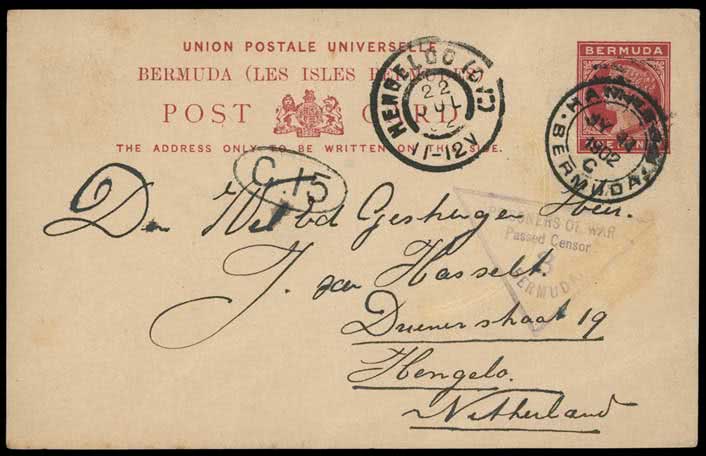 UNION POSTALE UNIVERSELLE
BERMUDA (LES ISLES
POST CARD
THE ADDRESS ONLY TO BE WRITTEN ON THE SIDE.
BERMUDA
ONE PENNY
HENGELO (OV)
22
JUL
11-12V
HAMILTON
JY
1902
C
BERMUDA
C.15
PRISONERS OF WAR
Passed Censor
BERMUDA
Den Wel
Heer.
J. van Hasselt.
19
Hengelo.
Netherland